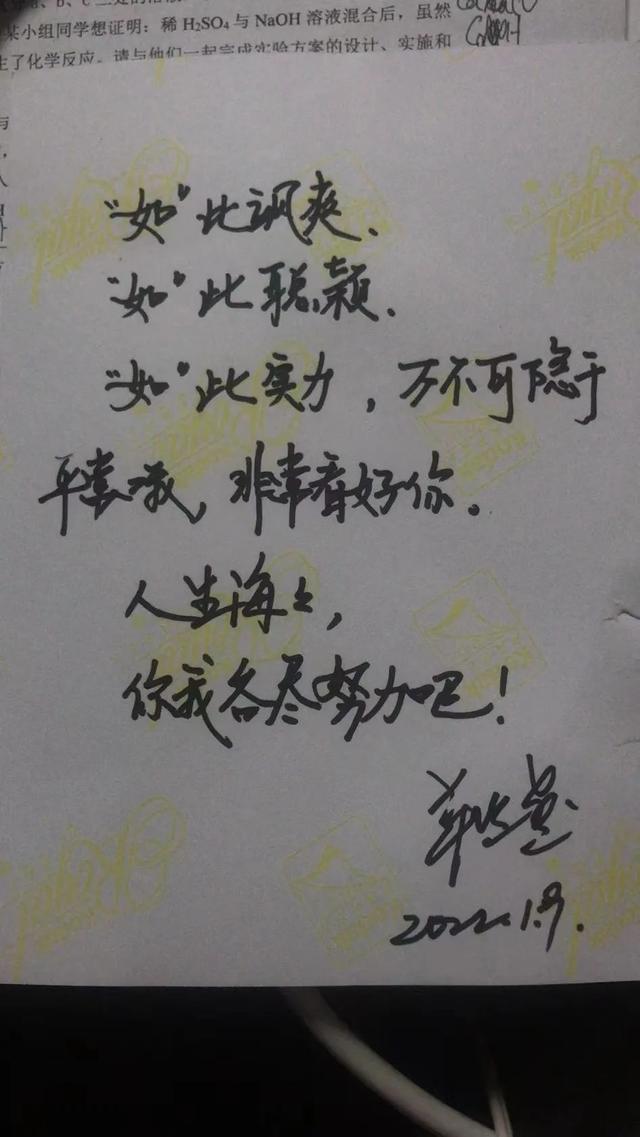 某小组同学想证明：稀 H₂SO₄ 与 NaOH 溶液混合后，虽然
生了化学反应。请与他们一起完成实验方案的设计、实施和
与
“如”此飒爽、
“如”此聪颖、
“如”此实力，万不可隐于
平常哦，非常看好你。
人生海上，
你我各尽努力吧！
2022.1.9.